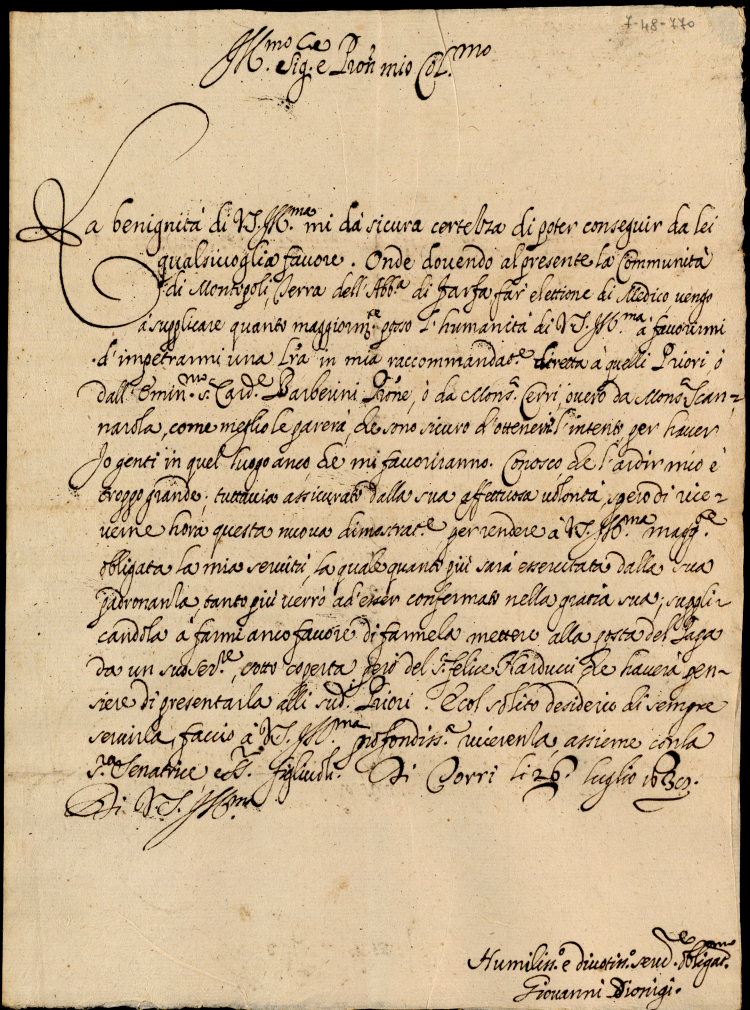 7-48-770
Ill.mo Sig.re e P̃ron mio Col.mo
La benignità di V.S. Ill.ma mi dà sicura certezza di poter conseguir da lei
qualsivoglia favore. Onde dovendo al presente la Communità
di Montopoli, Terra dell'Abb.a di Farfa far elettione di Medico vengo
à supplicare quanto maggiorm.te posso l'humanità di V.S. Ill.ma à favorirmi
d'impetrarmi una l̃ra in mia raccommandat.e diretta à quelli Priori, ò
dall'Emin.mo s. Card.e Barberini P̃rone, ò da Mons.r Cerri, overo da Mons.r Scan-
narola, come meglio le parerà, che sono sicuro d'ottener l'intento per haver
Io genti in quel luogo anco che mi favoriranno. Conosco che l'ardir mio è
troppo grande. tuttavia assicurato dalla sua affettuosa volontà, spero di rice-
verne hora questa nuova dimostrat.e per rendere à V.S. Ill.ma magg.te
obligata la mia servitù, la quale quanto più sarà essercitata dalla sua
padronanza, tanto più verrò ad'esser confermato nella gratia sua; suppli-
candola à farmi anco favore di farmela mettere alla posta del Papa
da un suo ser.re, sotto coperta però del S. Felice Narducci che haverà pen-
siere di presentarla alli sud.i Priori. E col solito desiderio di sempre
servirla, faccio à V.S. Ill.ma profondiss.a riverenza assieme con la
S.ra Senatrice e SS.ri figlivoli. Di Corri li 26 luglio 1639.
Di V.S. Ill.ma
Humiliss.o e divotiss.o serv.e obligat.mo
Giovanni Dionigi.